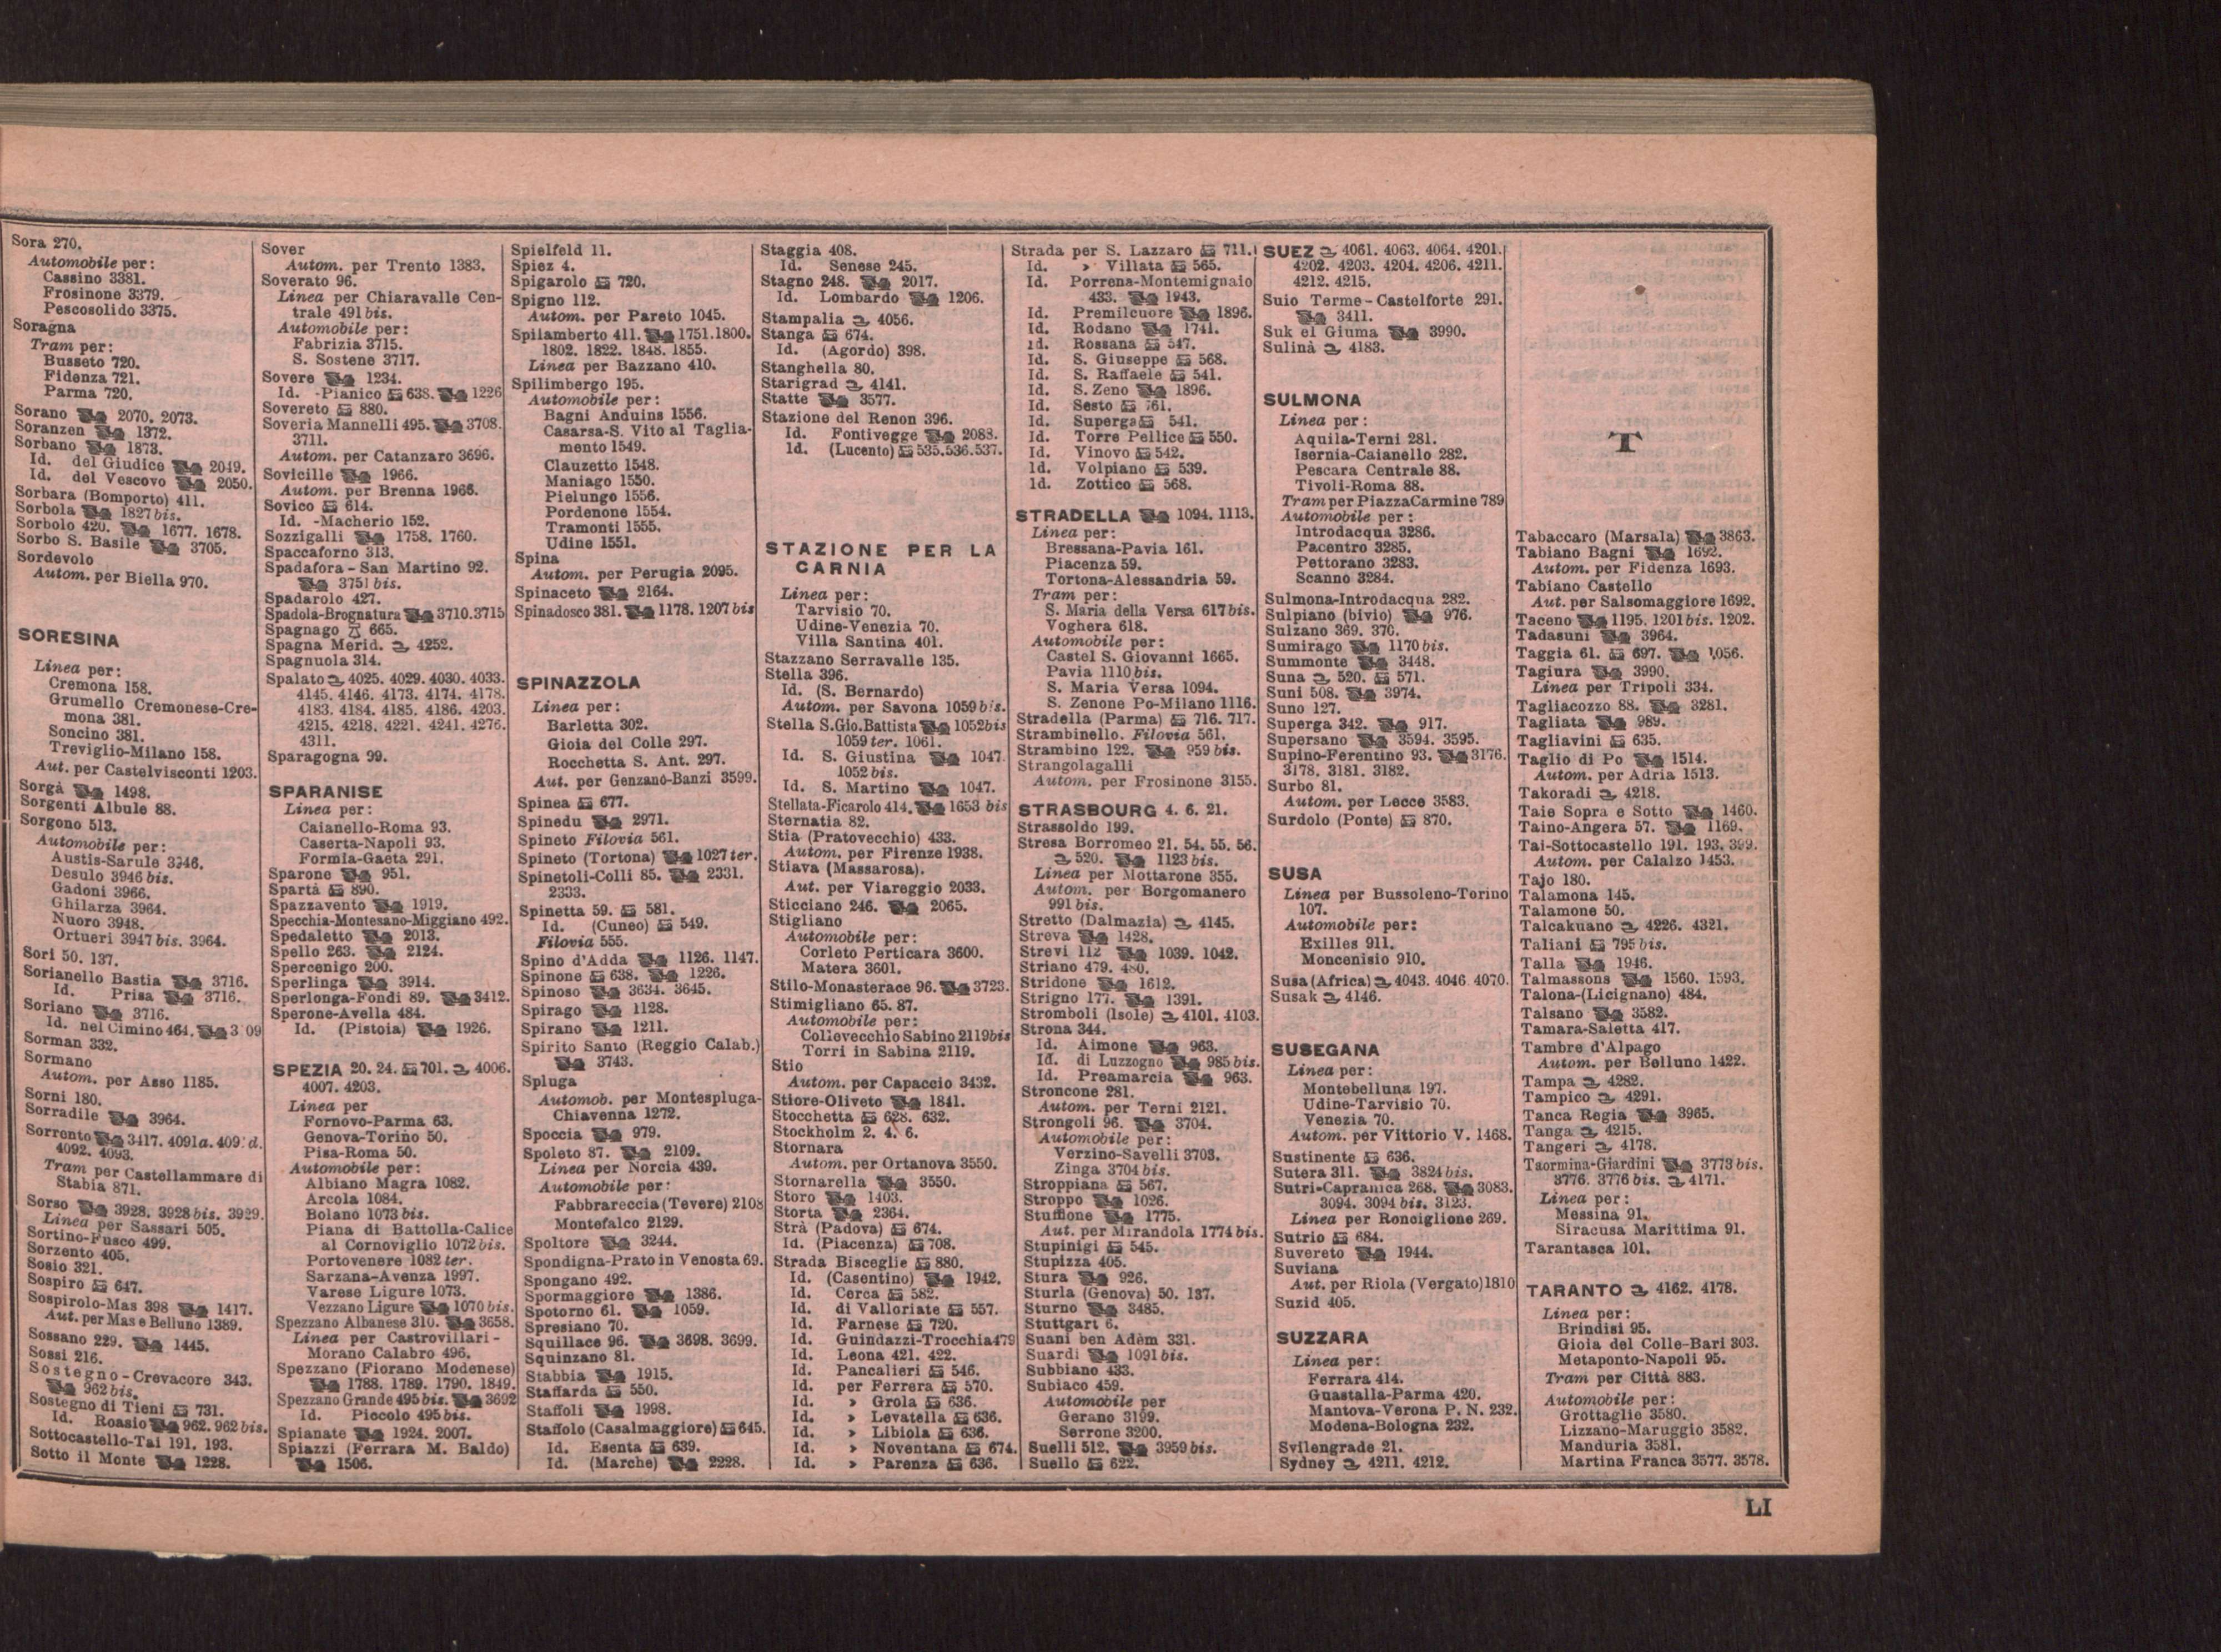 Sora 270.
Automobile per:
Cassino 3381.
Frosinone 3379.
Pescosolido 3375.
Soragna
Tram per:
Busseto 720.
Fidenza 721.
Parma 720.
Sorano 2070. 2073.
Soranzen 1372.
Sorbano 1873.
Id. del Giudice 2049.
Id. del Vescovo 2050.
Sorbara (Bomporto) 411.
Sorbola 1827 bis.
Sorbolo 420. 1677. 1678.
Sorbo S. Basile 3705.
Sordevolo
Autom. per Biella 970.
SORESINA
Linea per:
Cremona 158.
Grumello Cremonese-Cre-
mona 381.
Soncino 381.
Treviglio-Milano 158.
Aut. per Castelvisconti 1203.
Sorgà 1498.
Sorgenti Albule 88.
Sorgono 513.
Automobile per:
Austis-Sarule 3946.
Desulo 3946 bis.
Gadoni 3966.
Ghilarza 3964.
Nuoro 3948.
Ortueri 3947 bis. 3964.
Sori 50. 137.
Sorianello Bastia 3716.
Id. Prisa 3716.
Soriano 3716.
Id. nel Cimino 464.
Sorman 332.
Sormano
Autom. per Asso 1185.
Sorni 180.
Sorradile 3964.
Sorrento 3417. 4091a.
4092. 4093.
Tram per Castellammare di
Stabia 871.
Sorso 3928. 3928 bis. 3929.
Linea per Sassari 505.
Sortino-Fusco 499.
Sorzento 405.
Sosio 321.
Sospiro 647.
Sospirolo-Mas 398 1417.
Aut. per Mas e Belluno 1389.
Sossano 229. 1445.
Sossi 216.
Sostegno-Crevacore 343.
962 bis.
Sostegno di Tieni 731.
Id. Roasio 962. 962 bis.
Sottocastello-Tai 191. 193.
Sotto il Monte 1228.
Sover
Autom. per Trento 1383.
Soverato 96.
Linea per Chiaravalle Cen-
trale 491 bis.
Automobile per:
Fabrizia 3715.
S. Sostene 3717.
Sovere 1234.
Id. -Pianico 638. 1226
Sovereto 880.
Soveria Mannelli 495. 3708.
3711.
Autom. per Catanzaro 3696.
Sovicille 1966.
Autom. per Brenna 1966.
Sovico 614.
Id. -Macherio 152.
Sozzigalli 1758. 1760.
Spaccaforno 313.
Spadafora - San Martino 92.
3751 bis.
Spadarolo 427.
Spadola-Brognatura 3710. 3715
Spagnago 665.
Spagna Merid. 4252.
Spagnuola 314.
Spalato 4025. 4029. 4030. 4033.
4145. 4146. 4173. 4174. 4178.
4183. 4184. 4185. 4186. 4203.
4215. 4218. 4221. 4241. 4276.
4311.
Sparagogna 99.
SPARANISE
Linea per:
Caianello-Roma 93.
Caserta-Napoli 93.
Formia-Gaeta 291.
Sparone 951.
Spartà 890.
Spazzavento 1919.
Specchia-Montesano-Miggiano 492.
Spedaletto 2013.
Spello 263. 2124.
Spercenigo 200.
Sperlinga 3914.
Sperlonga-Fondi 89. 3412.
Sperone-Avella 484.
Id. (Pistoia) 1926.
SPEZIA 20. 24. 701. 4006.
4007. 4203.
Linea per
Fornovo-Parma 63.
Genova-Torino 50.
Pisa-Roma 50.
Automobile per:
Albiano Magra 1082.
Arcola 1084.
Bolano 1073 bis.
Piana di Battolla-Calice
al Cornoviglio 1072 bis.
Portovenere 1082 ter.
Sarzana-Avenza 1997.
Varese Ligure 1073.
Vezzano Ligure 1070 bis.
Spezzano Albanese 310. 3658.
Linea per Castrovillari -
Morano Calabro 496.
Spezzano (Fiorano Modenese)
1788. 1789. 1790. 1849.
Spezzano Grande 495 bis. 3692
Id. Piccolo 495 bis.
Spianate 1924. 2007.
Spiazzi (Ferrara M. Baldo)
1506.
Spielfeld 11.
Spiez 4.
Spigarolo 720.
Spigno 112.
Autom. per Pareto 1045.
Spilamberto 411. 1751. 1800.
1802. 1822. 1848. 1855.
Linea per Bazzano 410.
Spilimbergo 195.
Automobile per:
Bagni Anduins 1556.
Casarsa-S. Vito al Taglia-
mento 1549.
Clauzetto 1548.
Maniago 1550.
Pielungo 1556.
Pordenone 1554.
Tramonti 1555.
Udine 1551.
Spina
Autom. per Perugia 2095.
Spinaceto 2164.
Spinadosco 381. 1178. 1207 bis
SPINAZZOLA
Linea per:
Barletta 302.
Gioia del Colle 297.
Rocchetta S. Ant. 297.
Aut. per Genzano-Banzi 3599.
Spinea 677.
Spinedu 2971.
Spineto Filovia 561.
Spineto (Tortona) 1027 ter.
Spinetoli-Colli 85. 2331.
2333.
Spinetta 59. 581.
Id. (Cuneo) 549.
Filovia 555.
Spino d'Adda 1126. 1147.
Spinone 638. 1226.
Spinoso 3634. 3645.
Spirago 1128.
Spirano 1211.
Spirito Santo (Reggio Calab.)
3743.
Spluga
Automob. per Montespluga-
Chiavenna 1272.
Spoccia 979.
Spoleto 87. 2109.
Linea per Norcia 439.
Automobile per:
Fabbrareccia (Tevere) 2108
Montefalco 2129.
Spoltore 3244.
Spondigna-Prato in Venosta 69.
Spongano 492.
Spormaggiore 1386.
Spotorno 61. 1059.
Spresiano 70.
Squillace 96. 3698. 3699.
Squinzano 81.
Stabbia 1915.
Staffarda 550.
Staffoli 1998.
Staffolo (Casalmaggiore) 645.
Id. Esenta 639.
Id. (Marche) 2228.
Staggia 408.
Id. Senese 245.
Stagno 248. 2017.
Id. Lombardo 1206.
Stampalia 4056.
Stanga 674.
Id. (Agordo) 398.
Stanghella 80.
Starigrad 4141.
Statte 3577.
Stazione del Renon 396.
Id. Fontivegge 2088.
Id. (Lucento) 535. 536. 537.
STAZIONE PER LA
CARNIA
Linea per:
Tarvisio 70.
Udine-Venezia 70.
Villa Santina 401.
Stazzano Serravalle 135.
Stella 396.
Id. (S. Bernardo)
Autom. per Savona 1059 bis.
Stella S. Gio. Battista 1052 bis
1059 ter. 1061.
Id. S. Giustina 1047.
1052 bis.
Id. S. Martino 1047.
Stellata-Ficarolo 414. 1653 bis
Sternatia 82.
Stia (Pratovecchio) 433.
Autom. per Firenze 1938.
Stiava (Massarosa).
Aut. per Viareggio 2033.
Sticciano 246. 2065.
Stigliano
Automobile per:
Corleto Perticara 3600.
Matera 3601.
Stilo-Monasterace 96. 3723.
Stimigliano 65. 87.
Automobile per:
Collevecchio Sabino 2119 bis
Torri in Sabina 2119.
Stio
Autom. per Capaccio 3432.
Stiore-Oliveto 1841.
Stocchetta 628. 632.
Stockholm 2. 4. 6.
Stornara
Autom. per Ortanova 3550.
Stornarella 3550.
Storo 1403.
Storta 2364.
Strà (Padova) 674.
Id. (Piacenza) 708.
Strada Bisceglie 880.
Id. (Casentino) 1942.
Id. Cerca 582.
Id. di Valloriate 557.
Id. Farnese 720.
Id. Guindazzi-Trocchia 479
Id. Leona 421. 422.
Id. Pancalieri 546.
Id. per Ferrera 570.
Id. » Grola 636.
Id. » Levatella 636.
Id. » Libiola 636.
Id. » Noventana 674.
Id. » Parenza 636.
Strada per S. Lazzaro 711.
Id. » Villata 565.
Id. Porrena-Montemignaio
433. 1943.
Id. Premilcuore 1896.
Id. Rodano 1741.
Id. Rossana 547.
Id. S. Giuseppe 568.
Id. S. Raffaele 541.
Id. S. Zeno 1896.
Id. Sesto 761.
Id. Superga 541.
Id. Torre Pellice 550.
Id. Vinovo 542.
Id. Volpiano 539.
Id. Zottico 568.
STRADELLA 1094. 1113.
Linea per:
Bressana-Pavia 161.
Piacenza 59.
Tortona-Alessandria 59.
Tram per:
S. Maria della Versa 617 bis.
Voghera 618.
Automobile per:
Castel S. Giovanni 1665.
Pavia 1110 bis.
S. Maria Versa 1094.
S. Zenone Po-Milano 1116.
Stradella (Parma) 716. 717.
Strambinello. Filovia 561.
Strambino 122. 959 bis.
Strangolagalli
Autom. per Frosinone 3155.
STRASBOURG 4. 6. 21.
Strassoldo 199.
Stresa Borromeo 21. 54. 55. 56.
520. 1123 bis.
Linea per Mottarone 355.
Autom. per Borgomanero
991 bis.
Stretto (Dalmazia) 4145.
Streva 1428.
Strevi 112 1039. 1042.
Striano 479. 480.
Stridone 1612.
Strigno 177. 1391.
Stromboli (Isole) 4101. 4103.
Strona 344.
Id. Aimone 963.
Id. di Luzzogno 985 bis.
Id. Preamarcia 963.
Stroncone 281.
Autom. per Terni 2121.
Strongoli 96. 3704.
Automobile per:
Verzino-Savelli 3703.
Zinga 3704 bis.
Stroppiana 567.
Stroppo 1026.
Stuffione 1775.
Aut. per Mirandola 1774 bis.
Stupinigi 545.
Stupizza 405.
Stura 926.
Sturla (Genova) 50. 137.
Sturno 3485.
Stuttgart 6.
Suani ben Adèm 331.
Suardi 1091 bis.
Subbiano 433.
Subiaco 459.
Automobile per
Gerano 3199.
Serrone 3200.
Suelli 512. 3959 bis.
Suello 622.
SUEZ 4061. 4063. 4064. 4201.
4202. 4203. 4204. 4206. 4211.
4212. 4215.
Suio Terme - Castelforte 291.
3411.
Suk el Giuma 3990.
Sulinà 4183.
SULMONA
Linea per:
Aquila-Terni 281.
Isernia-Caianello 282.
Pescara Centrale 88.
Tivoli-Roma 88.
Tram per Piazza Carmine 789
Automobile per:
Introdacqua 3286.
Pacentro 3285.
Pettorano 3283.
Scanno 3284.
Sulmona-Introdacqua 282.
Sulpiano (bivio) 976.
Sulzano 369. 370.
Sumirago 1170 bis.
Summonte 3448.
Suna 520. 571.
Suni 508. 3974.
Suno 127.
Superga 342. 917.
Supersano 3594. 3595.
Supino-Ferentino 93. 3176.
3178. 3181. 3182.
Surbo 81.
Autom. per Lecce 3583.
Surdolo (Ponte) 870.
SUSA
Linea per Bussoleno-Torino
107.
Automobile per:
Exilles 911.
Moncenisio 910.
Susa (Africa) 4043. 4046 4070.
Susak 4146.
SUSEGANA
Linea per:
Montebelluna 197.
Udine-Tarvisio 70.
Venezia 70.
Autom. per Vittorio V. 1468.
Sustinente 636.
Sutera 311. 3824 bis.
Sutri-Capranica 268. 3083.
3094. 3094 bis. 3123.
Linea per Ronciglione 269.
Sutrio 684.
Suvereto 1944.
Suviana
Aut. per Riola (Vergato) 1810
Suzid 405.
SUZZARA
Linea per:
Ferrara 414.
Guastalla-Parma 420.
Mantova-Verona P. N. 232.
Modena-Bologna 232.
Svilengrade 21.
Sydney 4211. 4212.
T
Tabaccaro (Marsala) 3863.
Tabiano Bagni 1692.
Autom. per Fidenza 1693.
Tabiano Castello
Aut. per Salsomaggiore 1692.
Taceno 1195. 1201 bis. 1202.
Tadasuni 3964.
Taggia 61. 697. 1056.
Tagiura 3990.
Linea per Tripoli 334.
Tagliacozzo 88. 3281.
Tagliata 989.
Tagliavini 635.
Taglio di Po 1514.
Autom. per Adria 1513.
Takoradi 4218.
Taie Sopra e Sotto 1460.
Taino-Angera 57. 1169.
Tai-Sottocastello 191. 193. 399.
Autom. per Calalzo 1453.
Tajo 180.
Talamona 145.
Talamone 50.
Talcakuano 4226. 4321.
Taliani 795 bis.
Talla 1946.
Talmassons 1560. 1593.
Talona-(Licignano) 484.
Talsano 3582.
Tamara-Saletta 417.
Tambre d'Alpago
Autom. per Belluno 1422.
Tampa 4282.
Tampico 4291.
Tanca Regia 3965.
Tanga 4215.
Tangeri 4178.
Taormina-Giardini 3773 bis.
3776. 3776 bis. 4171.
Linea per:
Messina 91.
Siracusa Marittima 91.
Tarantasca 101.
TARANTO 4162. 4178.
Linea per:
Brindisi 95.
Gioia del Colle-Bari 303.
Metaponto-Napoli 95.
Tram per Città 883.
Automobile per:
Grottaglie 3580.
Lizzano-Maruggio 3582.
Manduria 3581.
Martina Franca 3577. 3578.
LI